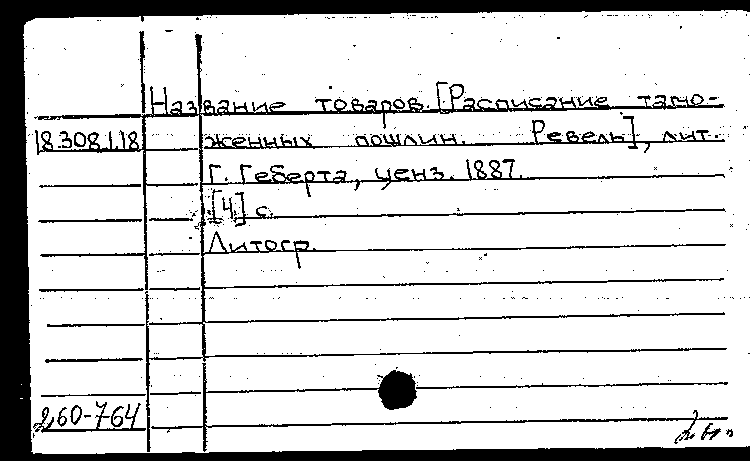 Название товаров. [Расписание тамо-
18.308.1.18 женных пошлин. Ревель], лит.
Г. Геберта, ценз. 1887.
[4] с.
Литогр.
2,60-764